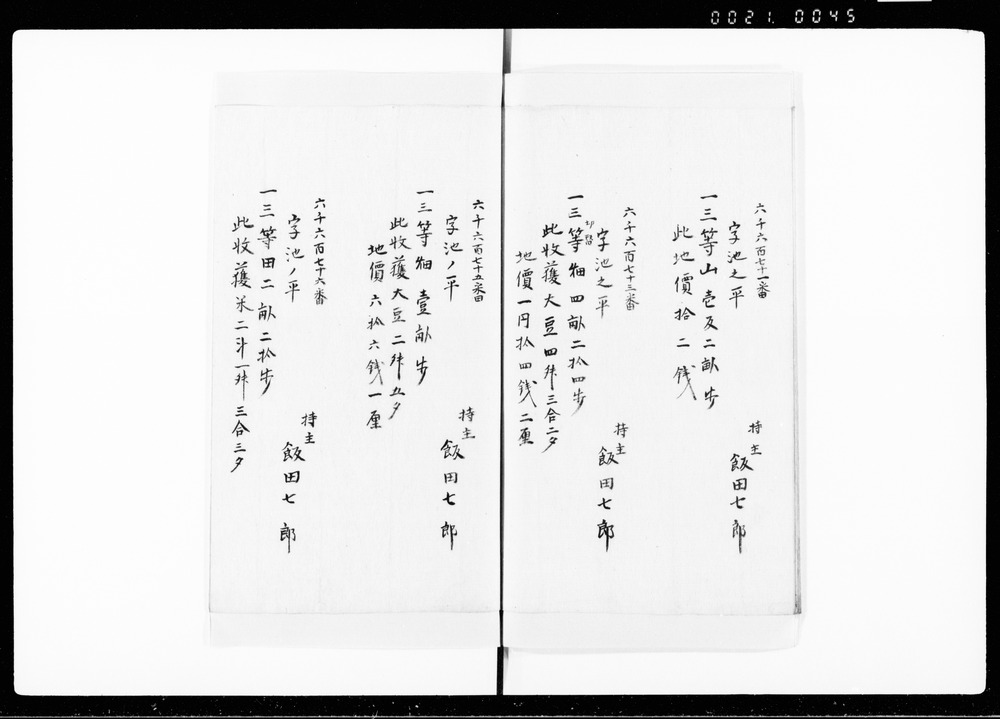 0021. 0045
六千六百七十一番
字池之平
一三等山 壱反二畝歩
此地價拾二銭
持主
飯田七郎
六千六百七十三番
字池之平
一三等畑 四畝二拾四歩
此收獲大豆四升三合二夕
地價一円拾四銭二厘
持主
飯田七郎
六千六百七十五番
字池ノ平
一三等畑 壹畝歩
此收獲大豆二升五夕
地價六拾六銭一厘
持主
飯田七郎
六千六百七十六番
字池ノ平
一三等田二畝二拾歩
持主
飯田七郎
此收獲米二斗一升三合三夕